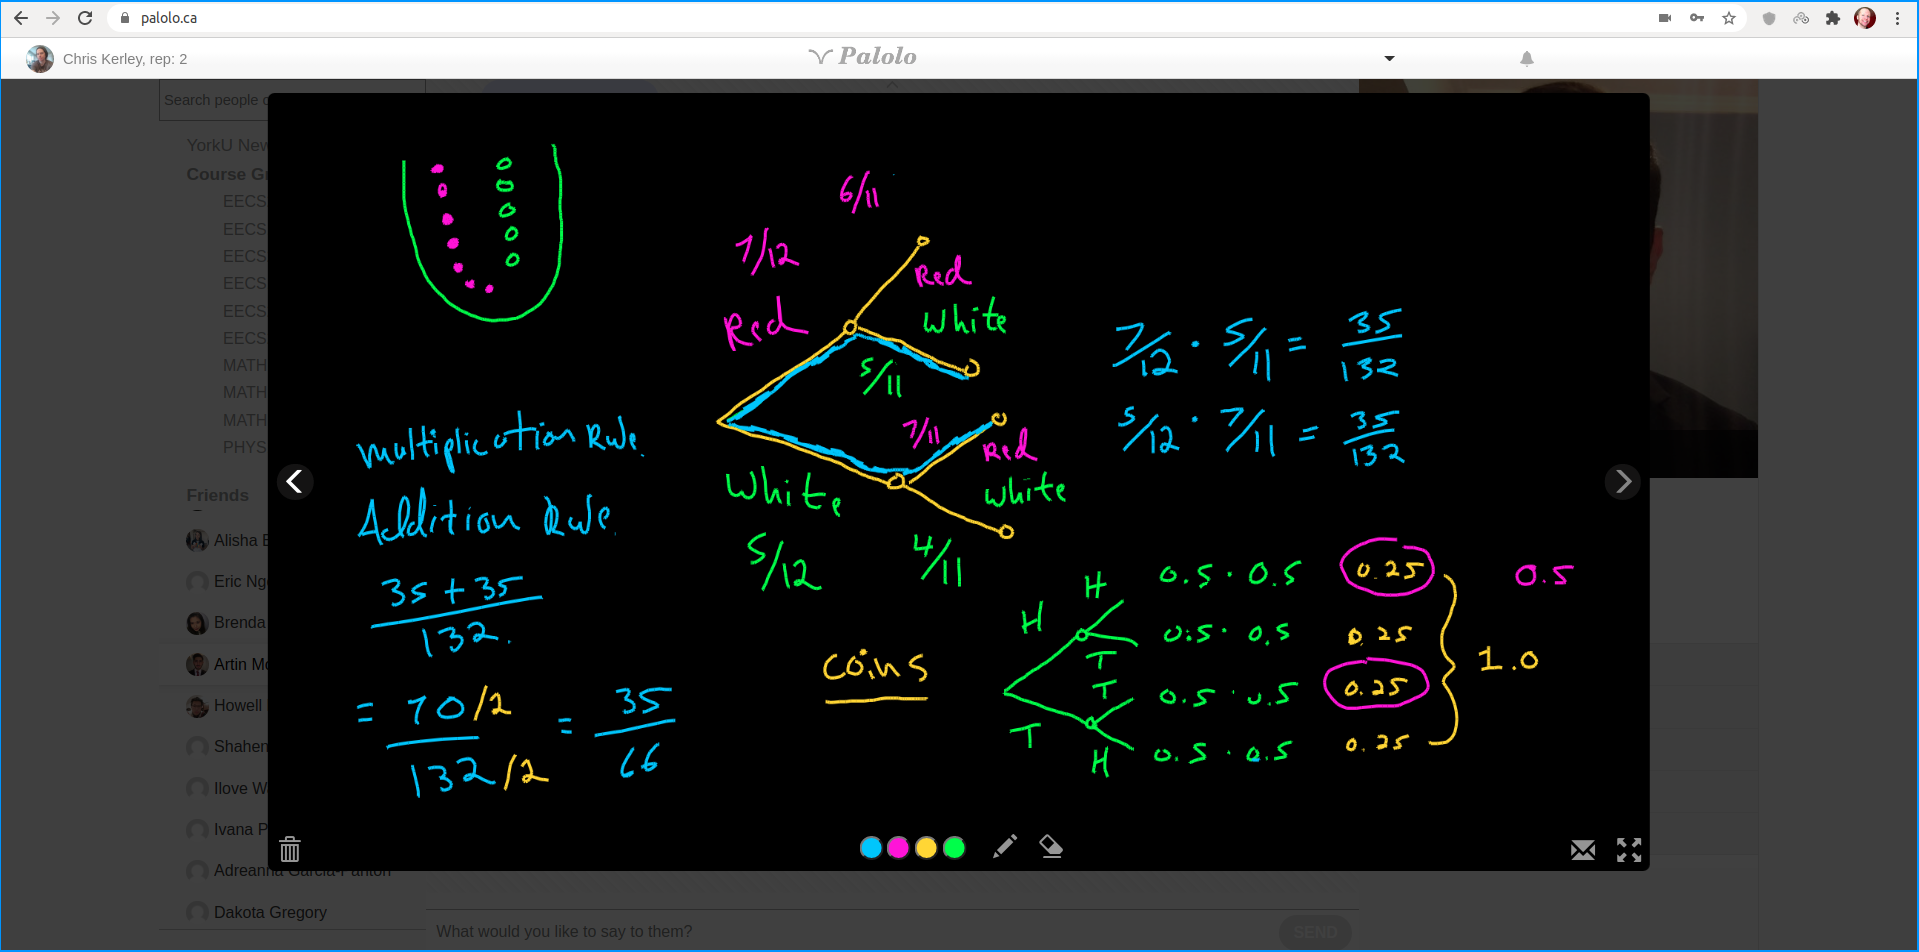 palolo.ca
Chris Kerley, rep: 2
Palolo
Search people
YorkU New
Course Gr
EECS
EECS
EECS
EECS
EECS
EECS
MATH
MATH
MATH
PHYS
Friends
Alisha B
Eric Ng
Brenda
Artin Mo
Howell
Shahen
Ilove W
Ivana P
Adreanna Garcia-Panton
Dakota Gregory
6/11
7/12
Red
Red
White
5/11
7/11
Red
White
White
5/12
4/11
7/12 · 5/11 = 35/132
5/12 · 7/11 = 35/132
Multiplication Rule.
Addition Rule.
35 + 35
132.
= 70/2 = 35
132/2 66
coins
H
H
T
T
T
H
0.5 · 0.5 0.25
0.5 · 0.5 0.25
0.5 · 0.5 0.25
0.5 · 0.5 0.25
1.0
0.5
What would you like to say to them?
SEND